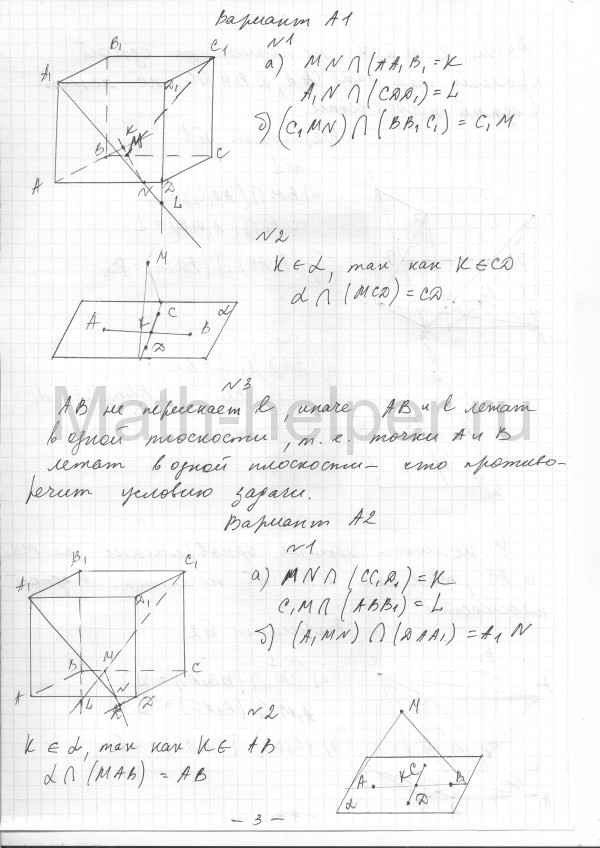 Вариант А1
№1
а) MN ∩ (AA₁B₁ = K
A₁N ∩ (CDD₁) = L
б) (C₁MN) ∩ (BB₁C₁) = C₁M
B₁
C₁
A₁
D₁
K
M
B
C
A
N
D
L
№2
K ∈ α, так как K ∈ CD
α ∩ (MCD) = CD.
M
C
α
A
K
B
D
№3
AB не пересекает l, иначе AB и l лежат
в одной плоскости, т.е. точки A и B
лежат в одной плоскости – что противо-
речит условию задачи.
Math-helper.ru
Вариант А2
№1
а) MN ∩ (CC₁D₁) = K
C₁M ∩ (ABB₁) = L
б) (A₁MN) ∩ (DAA₁) = A₁N
B₁
C₁
A₁
D₁
B
M
C
A
L
N
K
D
№2
K ∈ α, так как K ∈ AB
α ∩ (MAB) = AB
M
A
K
C
B
α
D
– 3 –